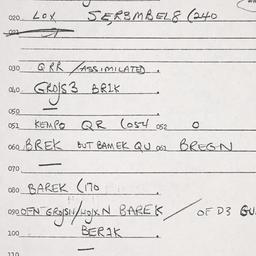 020 LOX SE,R3MBEL8 (240
030 QRR /ASSIMILATED.
040 GROJS3 BR1K
050
051 KEMPO QR (054 052 0
060 BREK BUT BAMEK QU 061 BREGN
070
080 BAREK (170
090 OEN GROJSN/HOJXN BAREK / OF D3 GU
100 BER1K
110